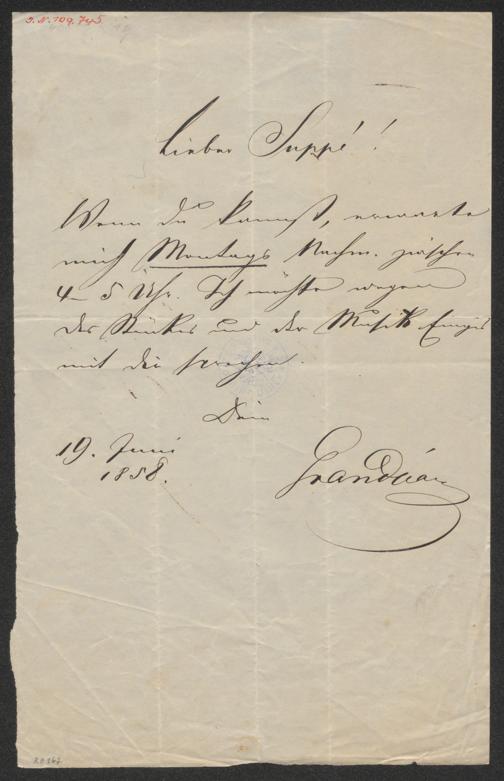 I.N. 109.745
Lieber Suppé!
Wenn du kannst, erwarte
mich Montags Nachm. zwischen
4–5 Uhr. Ich möchte wegen
des Stückes und der Musik Einiges
mit dir sprechen.
Dein
19. Juni
1858.
Grandjean